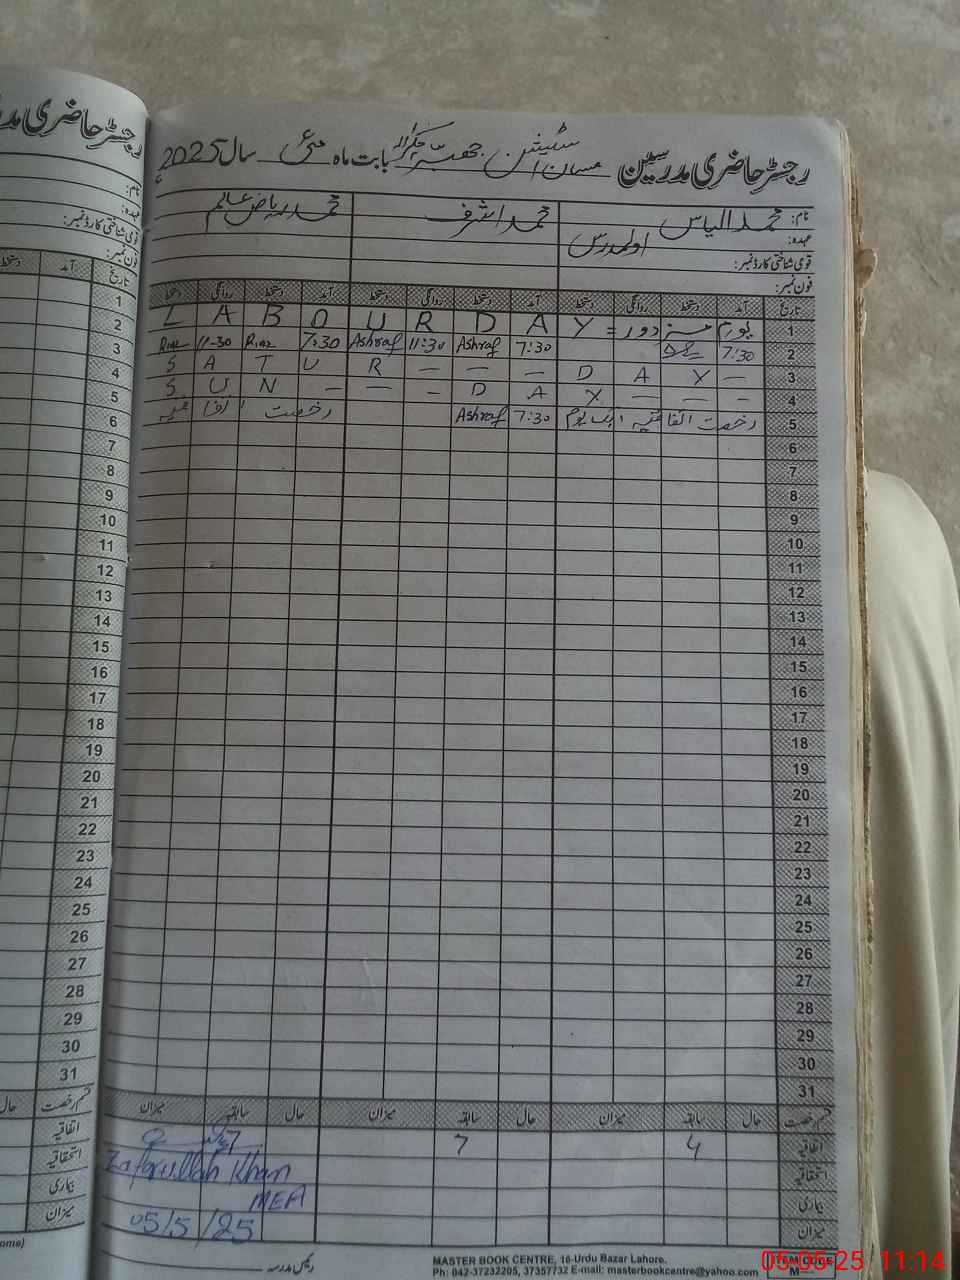 رجسٹر حاضری مدرسین مسان اسٹیشن بابت ماہ مئی سال 2025ء
نام: محمد الیاس محمد اشرف محمد ریاض عالم
عہدہ: اول مدرس
قومی شناختی کارڈ نمبر:
فون نمبر:
تاریخ آمد دستخط روانگی دستخط آمد دستخط روانگی دستخط آمد دستخط روانگی دستخط
1 یوم مزدور = L A B O U R D A Y
2 7:30 7:30 Ashraf 11:30 Ashraf 7:30 Riaz 11-30 Riaz
3 S A T U R - - - - D A Y -
4 S U N - - - D A Y - - -
5 رخصت اتفاقیہ ایک یوم 7:30 Ashraf رخصت اتفاقیہ
6
7
8
9
10
11
12
13
14
15
16
17
18
19
20
21
22
23
24
25
26
27
28
29
30
31
قسم رخصت حال سابقہ میزان حال سابقہ میزان حال سابقہ میزان
اتفاقیہ 4 7 7
استحقاقیہ
بیماری
میزان
Zafarullah Khan
MEA
05/5/25
رئیس مدرسہ
MASTER BOOK CENTRE, 16-Urdu Bazar Lahore.
Ph: 042-37232205, 37357732 E-mail: masterbookcentre@yahoo.com
ITEM CODE
M
رجسٹر حاضری مدر
نام:
عہدہ:
قومی شناختی کارڈ نمبر:
فون نمبر:
تاریخ آمد دستخط
1
2
3
4
5
6
7
8
9
10
11
12
13
14
15
16
17
18
19
20
21
22
23
24
25
26
27
28
29
30
31
قسم رخصت حال
اتفاقیہ
استحقاقیہ
بیماری
میزان
05-05-25 11:14